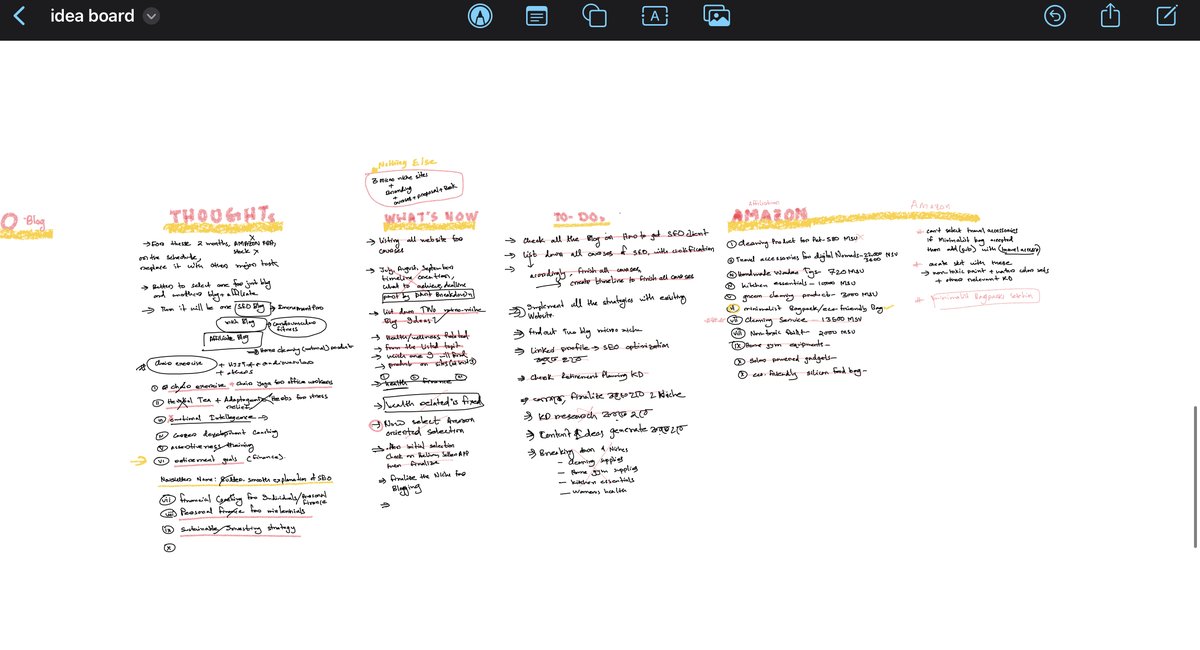 idea board
Blog
Nothing Else
3 Micro niche sites
+
Branding
+
courses + proposal + Book
THOUGHTS
→ For these 2 months, AMAZON FBA,
Stock X
on the schedule,
replace it with other major task
→ Better to select one for just blog
and another blog + affiliate
→ Then it will be one SEO Blog
Niche Blog
fitness
Affiliate Blog
chair exercise
+ others
① chair exercise + chair yoga for office workers
② Herbal Tea + Adaptogenic Herbs for stress
relief
③ emotional Intelligence →
④ career development coaching
⑤ assertiveness training
⑥ retirement goals (finance)
Newsletter Name: smooth explanation of SEO
⑦ Financial Coaching for Individuals / Personal
Finance
⑧ Personal finance for millennials
⑨ Sustainable Investing strategy
ⓧ
WHAT'S NOW
→ listing all website for
courses
→ July, August, September
timeline creation,
what to achieve, deadline
part by part Breakdown
→ list down TWO micro-niche
Blog Ideas
→ Health/wellness Related
→ from the listed topic
→ which one I will find
→ product on sites
→ health finance
→ health related is fixed
→ Now select Amazon
oriented selection
check on Helium Seller APP
then finalize
→ finalize the Niche for
Blogging
⇒
TO-DOs
→ check all the Blog on how to get SEO client
→ list down all courses of SEO, with certification
→ accordingly, finish all courses,
create timeline to finish all courses
⇒ Implement all the strategies with existing
Website.
⇒ find out Two blog micro niche
⇒ Linked profile → SEO optimization
করতে হবে
⇒ check Retirement Planning KD
finalize করতে হবে 2 Niche
⇒ KD research করতে হবে
⇒ Content Ideas generate করতে হবে
⇒ Breaking down 4 Niches
– cleaning supplies
– Home gym supplies
– kitchen essentials
– womens health
Affiliation
AMAZON
① cleaning Product for Pet - 580 MSV
② Travel accessories for digital Nomads - 22000 MSV
③ Handmade Wooden Toys - 720 MSV
④ kitchen essentials - 10000 MSV
⑤ green cleaning products - 3000 MSV
⑥ minimalist Bagpack/eco friendly Bag
⑦ Cleaning Service 13500 MSV
⑧ Non-toxic Paint - 2000 MSV
⑨ Home gym equipments -
ⓧ Solar powered gadgets -
ⓧ eco friendly silicon food bag -
Amazon
* can't select travel accessories
if Minimalist bag accepted
then add (sub) with travel access
* create list with these
→ non-toxic paint + water color sets
+ other relevant KD
* minimalist Bagpacks selection